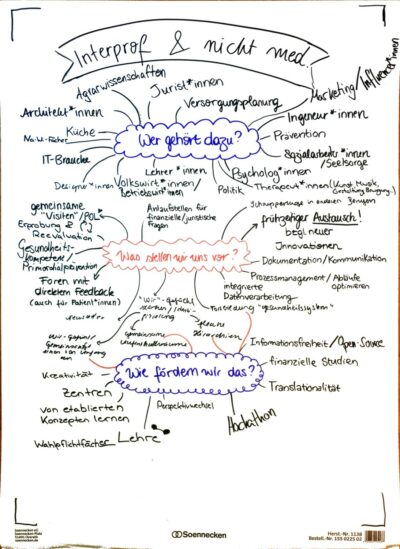 Interprof & nicht med.
Agrarwissenschaften
Jurist*innen
Versorgungsplanung
Marketing/Influencer*innen
Architekt*innen
Ingeneur*innen
Küche
Prävention
IT-Branche
Wer gehört dazu?
Sozialarbeiter*innen/
Seelsorge
Lehrer*innen
Psycholog*innen
Designer*innen
Volkswirt*innen/
Betriebswirt*innen
Politik
Therapeut*innen (Kunst, Musik,
gemeinsame
"Visiten"/POL
Erprobung &
Reevaluation
Anlaufstellen für
finanzielle/juristische
Fragen
in anderen Berufen
frühzeitiger Austausch!
Innovationen
Gesundheits-
kompetenz/
Primordialprävention
Was stellen wir uns vor?
Dokumentation/Kommunikation
Foren mit
direktem Feedback
(auch für Patient*innen)
Prozessmanagement/Abläufe
optimieren
integrierte
Datenverarbeitung
"Wir"-Gefühl
"Gesundheitssystem"
flache
Hierarchien
Wir-Gefühl/
gemeinsame
Informationsfreiheit/Open-Source
finanzielle Studien
Kreativität
Wie fördern wir das?
Translationalität
Zentren
von etablierten
Konzepten lernen
Perspektivwechsel
Hackathon
Wahlpflichtfächer
Lehre
Soennecken eG
Soennecken-Platz
51491 Overath
soennecken.de
Soennecken
Herst.-Nr. 1138
Bestell.-Nr. 155 0225 02